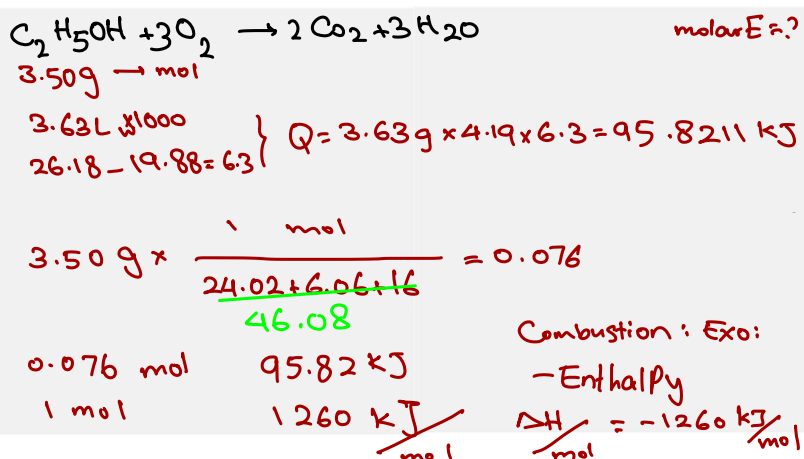 C₂H₅OH + 3O₂ → 2Co₂ + 3H₂O molar E = ?
3.50g → mol
3.63L ×1000
26.18 - 19.88 = 6.3 } Q = 3.63g × 4.19 × 6.3 = 95.8211 kJ
1 mol
3.50 g × ――― = 0.076
24.02 + 6.06 + 16
46.08
Combustion: Exo:
0.076 mol 95.82 kJ
- Enthalpy
1 mol 1260 kJ/mol ΔH/mol = -1260 kJ/mol